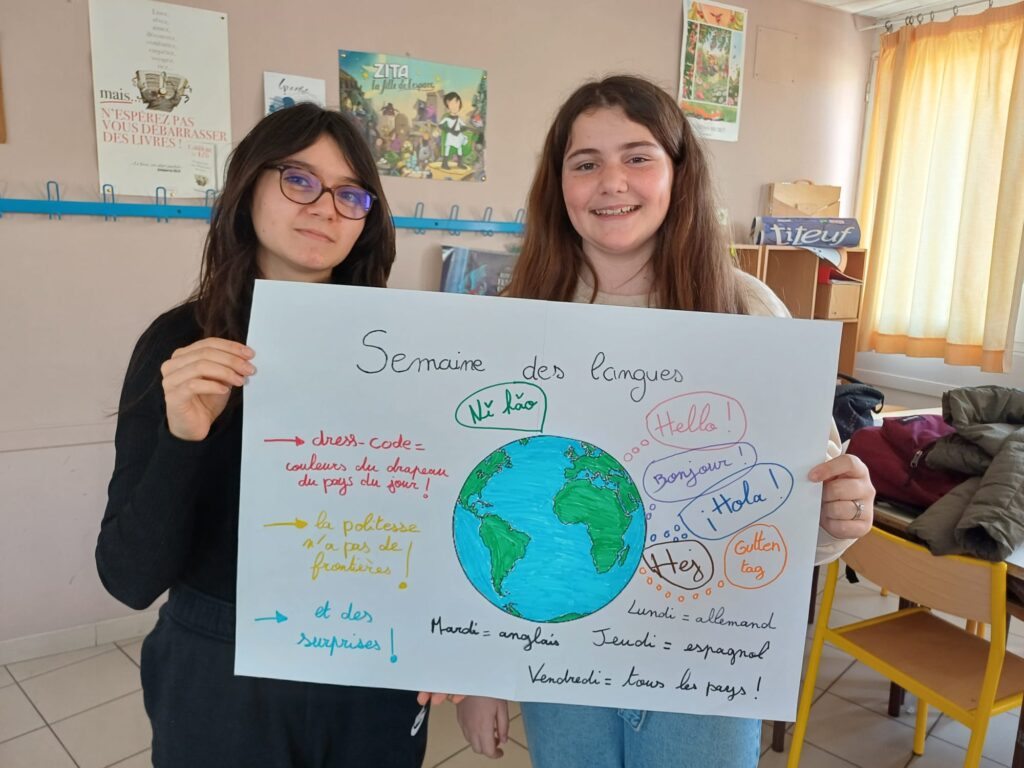 mais...
N'ESPÉREZ PAS
VOUS DÉBARRASSER
DES LIVRES !
ZITA
la fille de l'espace
titeuf
Semaine des langues
Nǐ hǎo
Hello !
Bonjour !
¡Hola !
Hej
Gutten
tag
→ dress-code =
couleurs du drapeau
du pays du jour !
→ la politesse
n'a pas de
frontières !
→ et des
surprises !
Lundi = allemand
Mardi = anglais
Jeudi = espagnol
Vendredi = tous les pays !